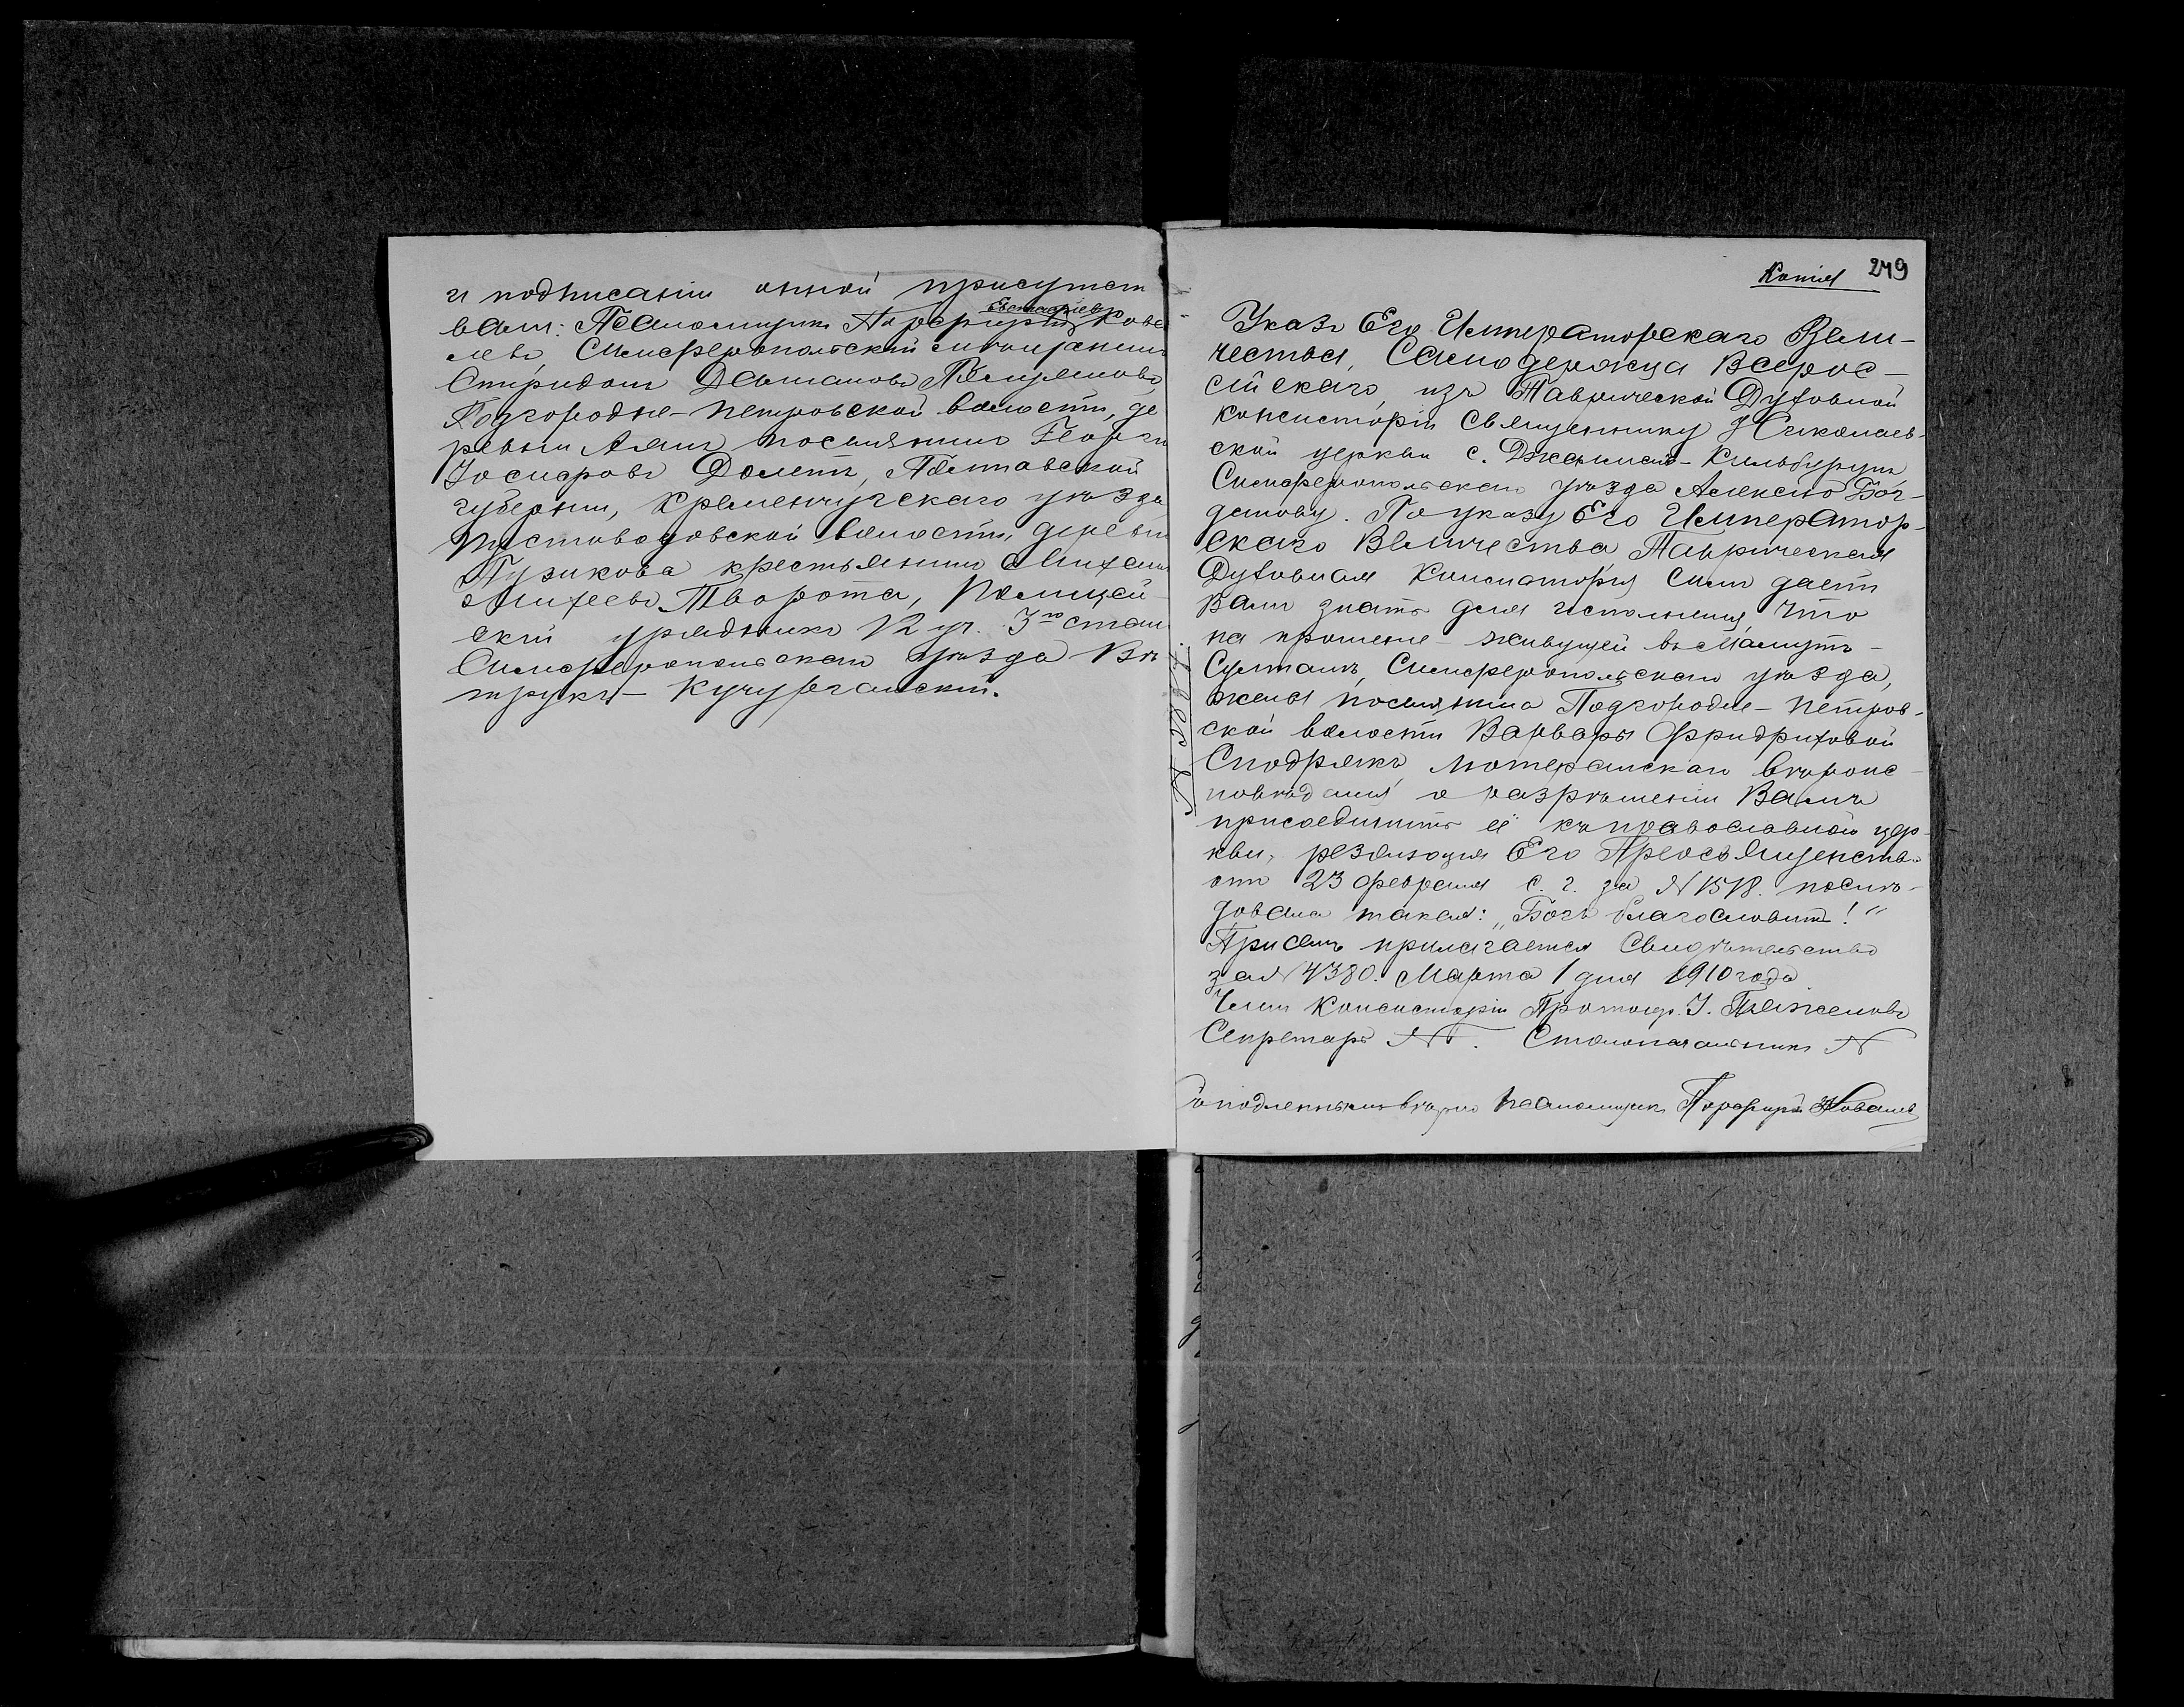 и подписаніи онной присутст
вали: Псаломщикъ Порфирій Евстафіевъ Кова
левъ, Симферопольскій мѣщанинъ
Спиридонъ Демьяновъ
Подгородне-Петровской волости, де
ревни Аянъ поселянинъ Георгій
Долетъ, Полтавской
губерніи, Кременчугскаго уѣзда
Пустовойтовской волости, деревни
Пузикова крестьянинъ Михаилъ
Михеевъ Творота, Полицей-
скій урядникъ 12 уч. 3го стана
Симферопольскаго уѣзда
Кучурганскій.
Копія 249
Указъ Его Императорскаго Вели-
чества, Самодержца Всерос-
сійскаго, изъ Таврической Духовной
Консисторіи Священнику Николаев-
ской церкви с. Джалманъ-Кильбурунъ
Симферопольскаго уѣзда Алексію Бог-
данову. По указу Его Император-
скаго Величества Таврическая
Духовная Консисторія симъ даетъ
Вамъ знать для исполненія, что
на прошеніе живущей въ Мамутъ-
Султанѣ, Симферопольскаго уѣзда,
жены поселянина Подгородне-Петров-
ской волости Варвары Фридриховой
Сподрякъ, лютеранскаго вѣроис-
повѣданія о разрѣшеніи Вамъ
присоединить её къ православной цер-
кви, резолюція Его Преосвященства
отъ 23 февраля с. г. за № 1518. послѣ-
довала такая: „Богъ благословитъ!"
При семъ прилагается Свидѣтельство
за № 4380. Марта 1 дня 1910 года
Членъ Консисторіи Протоіер. І. Тяжеловъ
Секретарь N. Столоначальникъ N
Съ подлиннымъ вѣрно Псаломщикъ Порфирій Ковалевъ